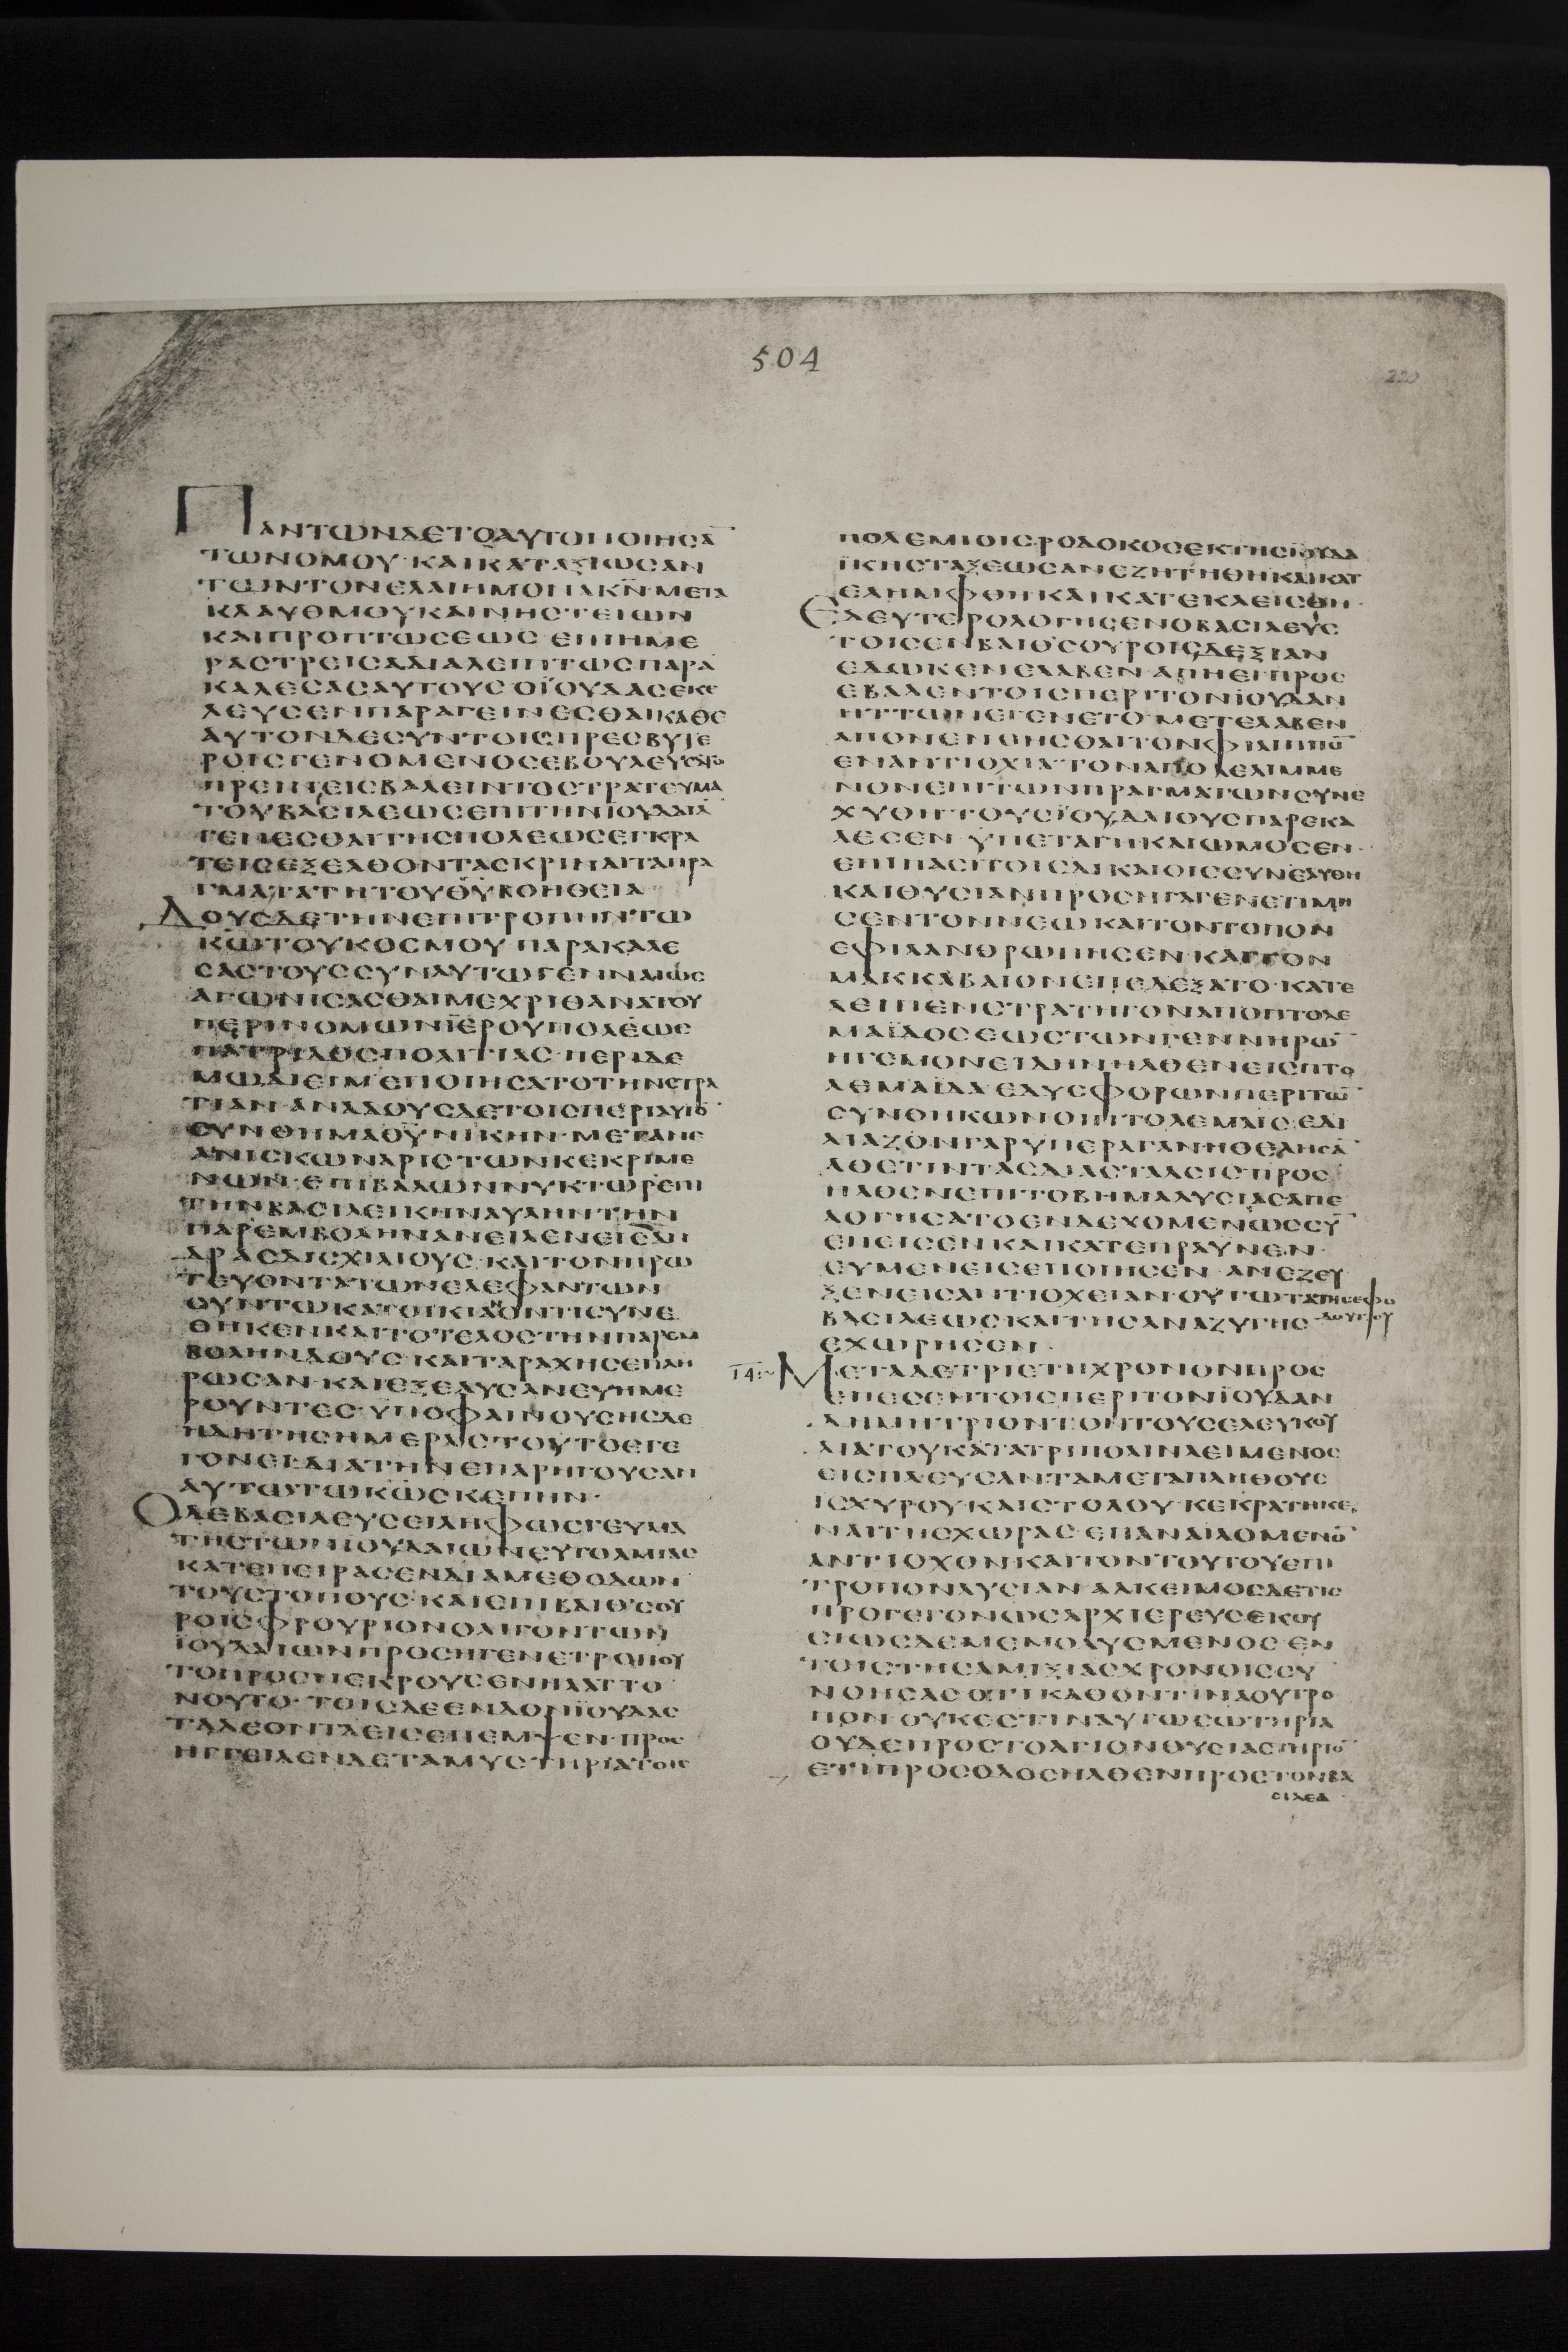 504
220
ΠΑΝΤΩΝΔΕΤΟΑΥΤΟΠΟΙΗΣΑ̅
ΤΩΝΟΜΟΥ·ΚΑΙΚΑΤΑΞΙΩΣΑΝ
ΤΩΝΤΟΝΕΛΑΙΗΜΟΝΑΚ̅Ν̅ΜΕΤΑ
ΚΛΑΥΘΜΟΥΚΑΙΝΗΣΤΕΙΩΝ
ΚΑΙΠΡΟΠΤΩΣΕΩΣ ΕΠΙΗΜΕ
ΡΑΣΤΡΕΙΣΑΔΙΑΛΕΙΠΤΩΣΠΑΡΑ
ΚΑΛΕΣΑΣΑΥΤΟΥΣΟΪΟΥΔΑΣΕΚΕ
ΛΕΥΣΕΝΠΑΡΑΓΕΙΝΕΣΘΑΙΚΑΘΕ
ΑΥΤΟΝΔΕΣΥΝΤΟΙΣΠΡΕΣΒΥΤΕ
ΡΟΙΣΓΕΝΟΜΕΝΟΣΕΒΟΥΛΕΥΣΑΤΟ
ΠΡΙΝΕΙΣΒΑΛΕΙΝΤΟΣΤΡΑΤΕΥΜΑ
ΤΟΥΒΑΣΙΛΕΩΣΕΠΙΤΗΝΪΟΥΔΑΙΑ̅
ΓΕΝΕΣΘΑΙΤΗΣΠΟΛΕΩΣΕΓΚΡΑ
ΤΕΙΣΕΞΕΛΘΟΝΤΑΣΚΡΙΝΑΙΤΑΠΡΑ
ΓΜΑΤΑΤΗΤΟΥΘ̅Υ̅ΒΟΗΘΕΙΑ
ΔΟΥΣΔΕΤΗΝΕΠΙΤΡΟΠΗΝΤΩ
Κ̅Ω̅ΤΟΥΚΟΣΜΟΥ ΠΑΡΑΚΑΛΕ
ΣΑΣΤΟΥΣΣΥΝΑΥΤΩΓΕΝΝΑΙΩΣ
ΑΓΩΝΙΣΑΣΘΑΙΜΕΧΡΙΘΑΝΑΤΟΥ
ΠΕΡΙΝΟΜΩΝΪΕΡΟΥΠΟΛΕΩΣ
ΠΑΤΡΙΔΟΣΠΟΛΙΤΙΑΣ·ΠΕΡΙΔΕ
ΜΩΔΙΕΙΜΕΠΟΙΗΣΑΤΟΤΗΝΣΤΡΑ
ΤΙΑΝ·ΑΝΑΔΟΥΣΔΕΤΟΙΣΠΕΡΙΑΥΤΟ̅
ΣΥΝΘΗΜΑΘ̅Υ̅ΝΙΚΗΝ·ΜΕΤΑΝΕ
ΑΝΙΣΚΩΝΑΡΙΣΤΩΝΚΕΚΡΙΜΕ
ΝΩΝ·ΕΠΙΒΑΛΩΝΝΥΚΤΩΡΕΠΙ
ΤΗΝΒΑΣΙΛΕΙΚΗΝΑΥΛΗΝΤΗΝ
ΠΑΡΕΜΒΟΛΗΝΑΝΕΙΛΕΝΕΙΣΑΝ
ΔΡΑΣΔΙΣΧΙΛΙΟΥΣ·ΚΑΙΤΟΝΠΡΩ
ΤΕΥΟΝΤΑΤΩΝΕΛΕΦΑΝΤΩΝ
ΣΥΝΤΩΚΑΤΟΙΚΙΑΝΟΝΤΙΣΥΝΕ
ΘΗΚΕΝΚΑΙΤΟΤΕΛΟΣΤΗΝΠΑΡΕΜ
ΒΟΛΗΝΔΕΟΥΣ·ΚΑΙΤΑΡΑΧΗΣΕΠΛΗ
ΡΩΣΑΝ·ΚΑΙΕΞΕΛΥΣΑΝΕΥΗΜΕ
ΡΟΥΝΤΕΣ·ΥΠΟΦΑΙΝΟΥΣΗΣΔΕ
ΗΔΗΤΗΣΗΜΕΡΑΣΤΟΥΤΟΕΓΕ
ΓΟΝΕΙΔΙΑΤΗΝΕΠΑΡΗΓΟΥΣΑΝ
ΑΥΤΩΤΟΥΚ̅Υ̅ΣΚΕΠΗΝ·
ΟΔΕΒΑΣΙΛΕΥΣΕΙΛΗΦΩΣΓΕΥΜΑ
ΤΗΣΤΩΝΪΟΥΔΑΙΩΝΕΥΤΟΛΜΙΑΣ
ΚΑΤΕΠΕΙΡΑΣΕΝΔΙΑΜΕΘΟΔΩΝ
ΤΟΥΣΤΟΠΟΥΣ·ΚΑΙΕΠΙΒΑΙΘΣΟΥ
ΡΟΙΣΦΡΟΥΡΙΟΝΟΧΥΡΟΝΤΩΝ
ΪΟΥΔΑΙΩΝΠΡΟΣΗΓΕΝΕΤΡΟΠΟΥ
ΤΟΠΡΟΣΕΚΡΟΥΣΕΝΗΛΑΤΤΟ
ΝΟΥΤΟ·ΤΟΙΣΔΕΕΝΔΟΝΪΟΥΔΑΣ
ΤΑΔΕΟΝΤΑΕΙΣΕΠΕΜΨΕΝ·ΠΡΟΣ
ΗΓΓΕΙΛΕΝΔΕΤΑΜΥΣΤΗΡΙΑΤΟΙΣ
ΠΟΛΕΜΙΟΙΣΡΟΔΟΚΟΣΕΚΤΗΣΪΟΥΔΑ
ΪΚΗΣΤΑΞΕΩΣΑΝΕΖΗΤΗΘΗΚΑΙΚΑΤ
ΕΛΗΜΦΘΗΚΑΙΚΑΤΕΚΛΕΙΣΘΗ·
ΕΔΕΥΤΕΡΟΛΟΓΗΣΕΝΟΒΑΣΙΛΕΥΣ
ΤΟΙΣΕΝΒΑΙΘΣΟΥΡΟΙΣΔΕΞΙΑΝ
ΕΔΩΚΕΝΕΛΑΒΕΝ ΑΠΗΕΙΠΡΟΣ
ΕΒΑΛΕΝΤΟΙΣΠΕΡΙΤΟΝΪΟΥΔΑΝ
ΗΤΤΩΝΕΓΕΝΕΤΟ·ΜΕΤΕΛΑΒΕΝ
ΑΠΟΝΕΝΟΗΣΘΑΙΤΟΝΦΙΛΙΠΠΟ̅
ΕΝΑΝΤΙΟΧΙΑ·ΤΟΝΑΠΟΛΕΛΙΜΜΕ
ΝΟΝΕΠΙΤΩΝΠΡΑΓΜΑΤΩΝΣΥΝΕ
ΧΥΘΗΤΟΥΣΪΟΥΔΑΙΟΥΣΠΑΡΕΚΑ
ΛΕΣΕΝ ΥΠΕΤΑΓΗΚΑΙΩΜΟΣΕΝ·
ΕΠΙΠΑΣΙΤΟΙΣΔΙΚΑΙΟΙΣΣΥΝΕΛΥΘΗ
ΚΑΙΘΥΣΙΑΝΠΡΟΣΗΓΑΓΕΝΕΤΙΜΗ
ΣΕΝΤΟΝΝΕΩΚΑΙΤΟΝΤΟΠΟΝ
ΕΦΙΛΑΝΘΡΩΠΗΣΕΝ·ΚΑΙΤΟΝ
ΜΑΚΚΑΒΑΙΟΝΕΠΕΔΕΞΑΤΟ·ΚΑΤΕ
ΛΕΙΠΕΝΣΤΡΑΤΗΓΟΝΑΠΟΠΤΟΛΕ
ΜΑΪΔΟΣΕΩΣΤΩΝΓΕΝΝΗΡΩ̅
ΗΓΕΜΟΝΕΙΔΗΝΗΛΘΕΝΕΙΣΠΤΟ
ΛΕΜΑΪΔΑΕΔΥΣΦΟΡΩΝΠΕΡΙΤΩ̅
ΣΥΝΘΗΚΩΝΟΙΠΤΟΛΕΜΑΙΣ·ΕΔΙ
ΑΙΑΖΟΝΓΑΡΥΠΕΡΑΓΑΝΗΘΕΛΗΣΑ̅
ΑΘΕΤΙΝΤΑΣΔΙΑΣΤΑΛΣΙΣ·ΠΡΟΣ
ΗΛΘΕΝΕΠΙΤΟΒΗΜΑΛΥΣΙΑΣΑΠΕ
ΛΟΓΗΣΑΤΟΕΝΔΕΧΟΜΕΝΩΣΣΥ̅
ΕΠΕΙΣΕΝΚΑΙΚΑΤΕΠΡΑΥΝΕΝ·
ΕΥΜΕΝΕΙΣΕΠΟΙΗΣΕΝ·ΑΝΕΖΕΥ
ΞΕΝΕΙΣΑΝΤΙΟΧΕΙΑΝ·ΟΥΤΩΤΑΤΗΣΕΦΟ
ΒΑΣΙΛΕΩΣΚΑΙΤΗΣΑΝΑΖΥΓΗΣ ΔΟΥΤΟΥ
ΕΧΩΡΗΣΕΝ·
14 ΜΕΤΑΔΕΤΡΙΕΤΗΧΡΟΝΟΝΠΡΟΣ
ΕΠΕΣΕΝΤΟΙΣΠΕΡΙΤΟΝΪΟΥΔΑΝ
ΔΗΜΗΤΡΙΟΝΤΟΝΤΟΥΣΕΛΕΥΚΟΥ
ΔΙΑΤΟΥΚΑΤΑΤΡΙΠΟΛΙΝΛΕΙΜΕΝΟΣ
ΕΙΣΠΛΕΥΣΑΝΤΑΜΕΤΑΠΛΗΘΟΥΣ
ΙΣΧΥΡΟΥΚΑΙΣΤΟΛΟΥ·ΚΕΚΡΑΤΗΚΕ
ΝΑΙΤΗΣΧΩΡΑΣ·ΕΠΑΝΑΙΛΟΜΕΝΟ̅
ΑΝΤΙΟΧΟΝΚΑΙΤΟΝΤΟΥΤΟΥΕΠΙ
ΤΡΟΠΟΝΛΥΣΙΑΝ·ΑΛΚΕΙΜΟΣΔΕΤΙΣ
ΠΡΟΓΕΓΟΝΩΣΑΡΧΙΕΡΕΥΣΕΚΟΥ
ΣΙΩΣΔΕΜΕΜΟΛΥΣΜΕΝΟΣ ΕΝ
ΤΟΙΣΤΗΣΑΜΙΞΙΑΣΧΡΟΝΟΙΣΣΥ
ΝΟΗΣΑΣ ΟΤΙΚΑΘΟΝΤΙΝΑΟΥΤΡΟ
ΠΟΝ·ΟΥΚΕΣΤΙΝΑΥΤΩΣΩΤΗΡΙΑ
ΟΥΔΕΠΡΟΣΤΟΑΓΙΟΝΘΥΣΙΑΣΤΗΡΙΟ̅
ΕΤΙΠΡΟΣΟΔΟΣΗΛΘΕΝΠΡΟΣΤΟΝΒΑ
ΣΙΛΕΑ